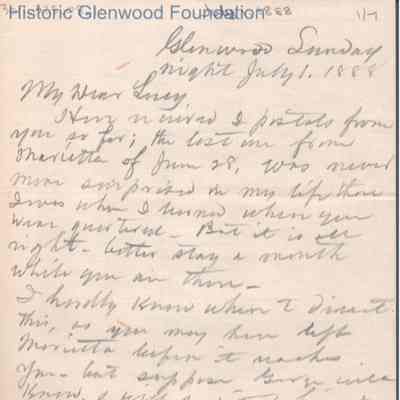 Historic Glenwood Foundation
Glenwood Sunday
night July 1. 1888
My Dear Lucy
Have received 2 postals from
you so far; the last one from
Marietta of June 28, was never
more surprised in my life than
I was when I learned where you
were quartered - But it is all
right - better stay a month
while you are there -
I hardly know where to direct
this, as you may have left
Marietta before it reaches
you - but suppose George will
Know.